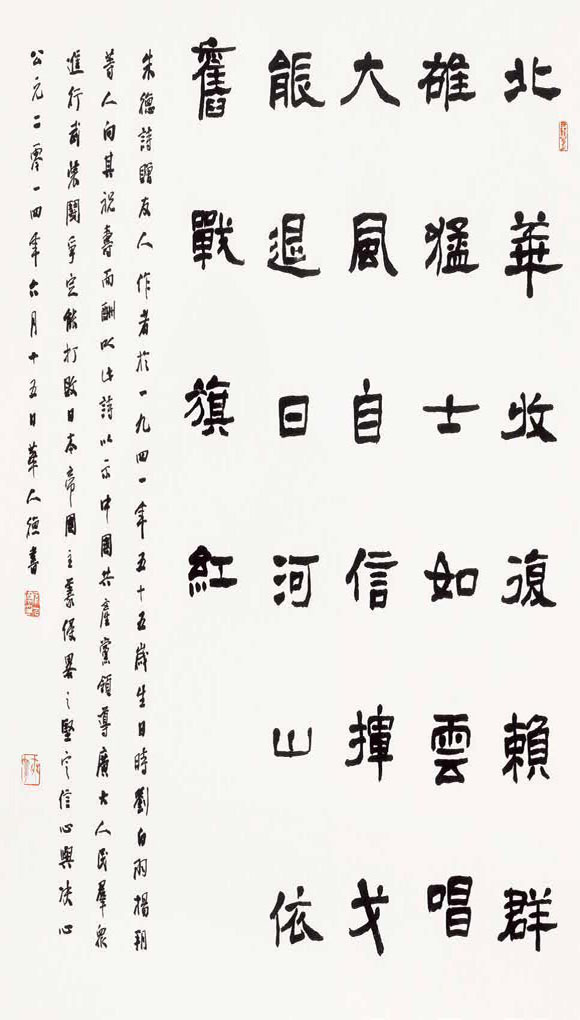 北華收復賴群
雄猛士如雲唱
大風自信揮戈
能退日河山依
舊戰旗紅
朱德詩贈友人作者於一九四一年五十五歲生日時劉白羽楊朔
等人向其祝壽而酬以此詩以示中國共產黨領導廣大人民群眾
進行武裝鬪爭定能打敗日本帝國主義侵略之堅定信心與決心
公元二零一四年六月十五日華人德書